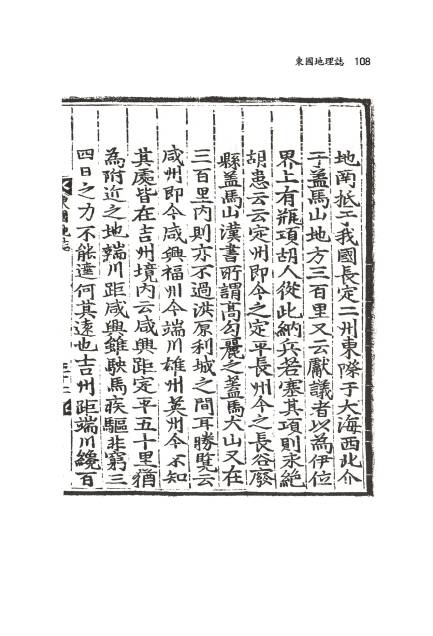 東國地理誌 108
地南抵于我國長定二州東際于大海西北介
于盖馬山地方三百里又云獻議者以為伊位
界上有瓶項胡人從此納兵若塞其項則永絶
胡患云云定州即今之定平長州今之長谷廢
縣盖馬山漢書所謂高勾麗之盖馬大山又在
三百里內則亦不過洪原利城之間耳勝覽云
咸州即今咸興福州今端川雄州英州今不知
其處皆在吉州境內云咸興距定平五十里猶
為附近之地端川距咸興雖駛馬疾驅非窮三
四日之力不能達何其遠也吉州距端川纔百